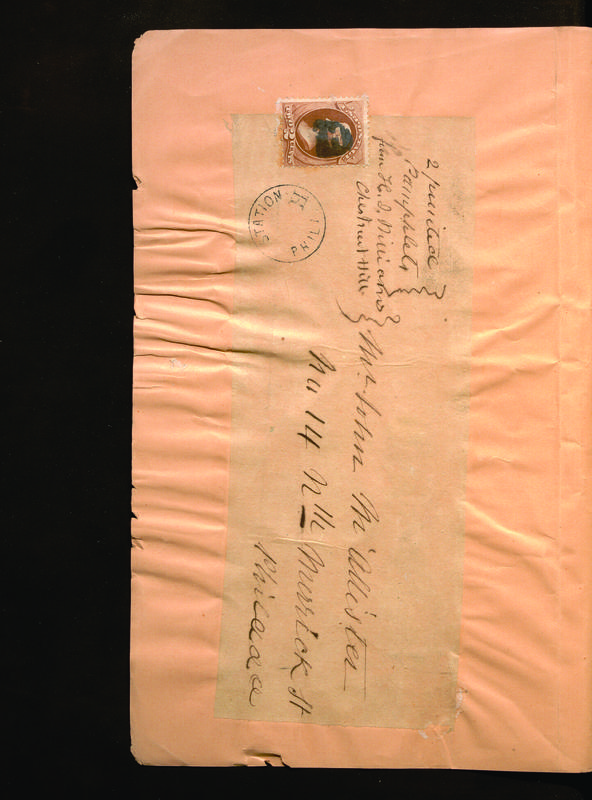 2 printed
Pamphlets
from H. J. Williams
Chestnut Hill
Mr. John McAllister
No 14 Nth Merrick St
Philada
STATION H
PHIL